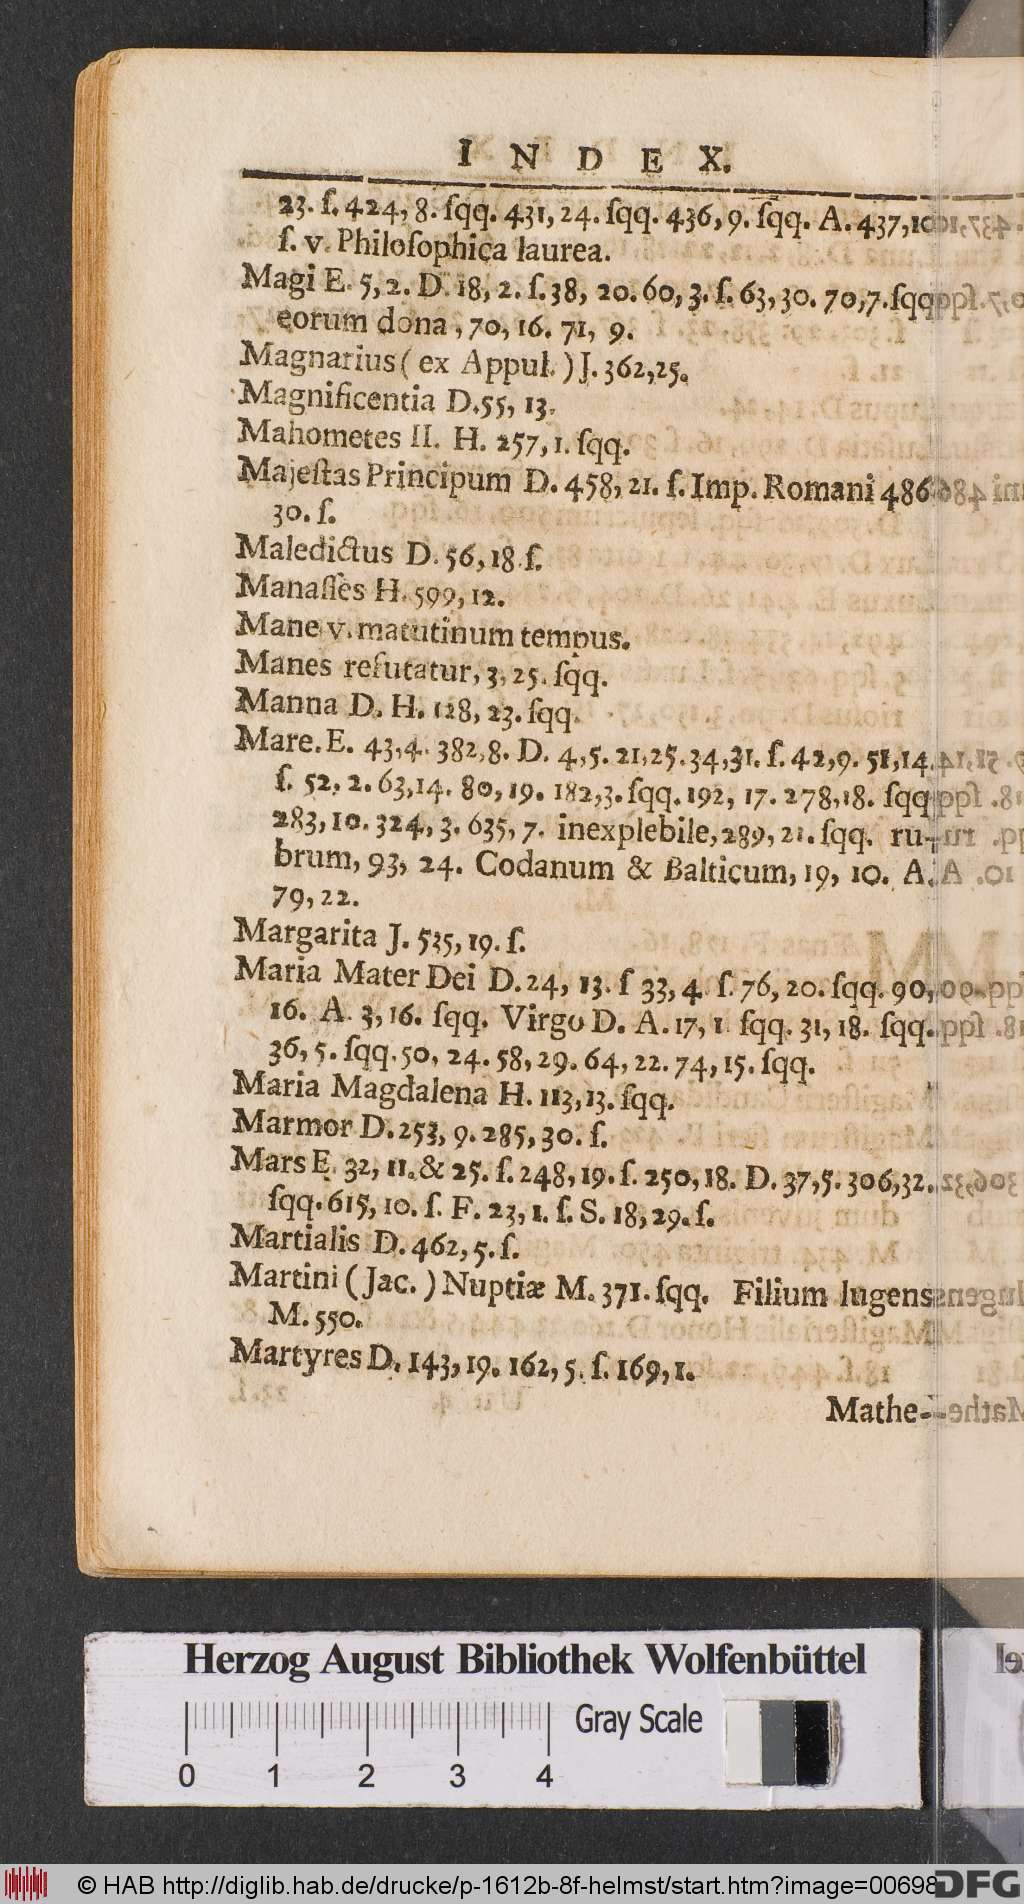 I N D E X.
23. ſ. 424, 8. ſqq. 431, 24. ſqq. 436, 9. ſqq. A. 437, 10
ſ. v. Philoſophica laurea.
Magi E. 5, 2. D. 18, 2. ſ. 38, 20. 60, 3. ſ. 63, 30. 70, 7. ſqq
eorum dona, 70, 16. 71, 9.
Magnarius ( ex Appul. ) J. 362, 25.
Magnificentia D. 55, 13.
Mahometes II. H. 257, 1. ſqq.
Majeſtas Principum D. 458, 21. ſ. Imp. Romani 486
30. ſ.
Maledictus D. 56, 18. ſ.
Manaſſes H. 599, 12.
Mane v. matutinum tempus.
Manes refutatur, 3, 25. ſqq.
Manna D. H. 128, 23. ſqq.
Mare. E. 43, 4. 382, 8. D. 4, 5. 21, 25. 34, 31. ſ. 42, 9. 51, 14.
ſ. 52, 2. 63, 14. 80, 19. 182, 3. ſqq. 192, 17. 278, 18. ſqq
283, 10. 324, 3. 635, 7. inexplebile, 289, 21. ſqq. ru-
brum, 93, 24. Codanum & Balticum, 19, 10. A.
79, 22.
Margarita J. 535, 19. ſ.
Maria Mater Dei D. 24, 13. ſ 33, 4. ſ. 76, 20. ſqq. 90,
16. A. 3, 16. ſqq. Virgo D. A. 17, 1. ſqq. 31, 18. ſqq.
36, 5. ſqq. 50, 24. 58, 29. 64, 22. 74, 15. ſqq.
Maria Magdalena H. 113, 13. ſqq.
Marmor D. 253, 9. 285, 30. ſ.
Mars E. 32, 11. & 25. ſ. 248, 19. ſ. 250, 18. D. 37, 5. 306, 32.
ſqq. 615, 10. ſ. F. 23, 1. ſ. S. 18, 29. ſ.
Martialis D. 462, 5. ſ.
Martini ( Jac. ) Nuptiæ M. 371. ſqq. Filium lugens
M. 550.
Martyres D. 143, 19. 162, 5. ſ. 169, 1.
Mathe-
Herzog August Bibliothek Wolfenbüttel
Gray Scale
0 1 2 3 4
© HAB http://diglib.hab.de/drucke/p-1612b-8f-helmst/start.htm?image=00698
DFG